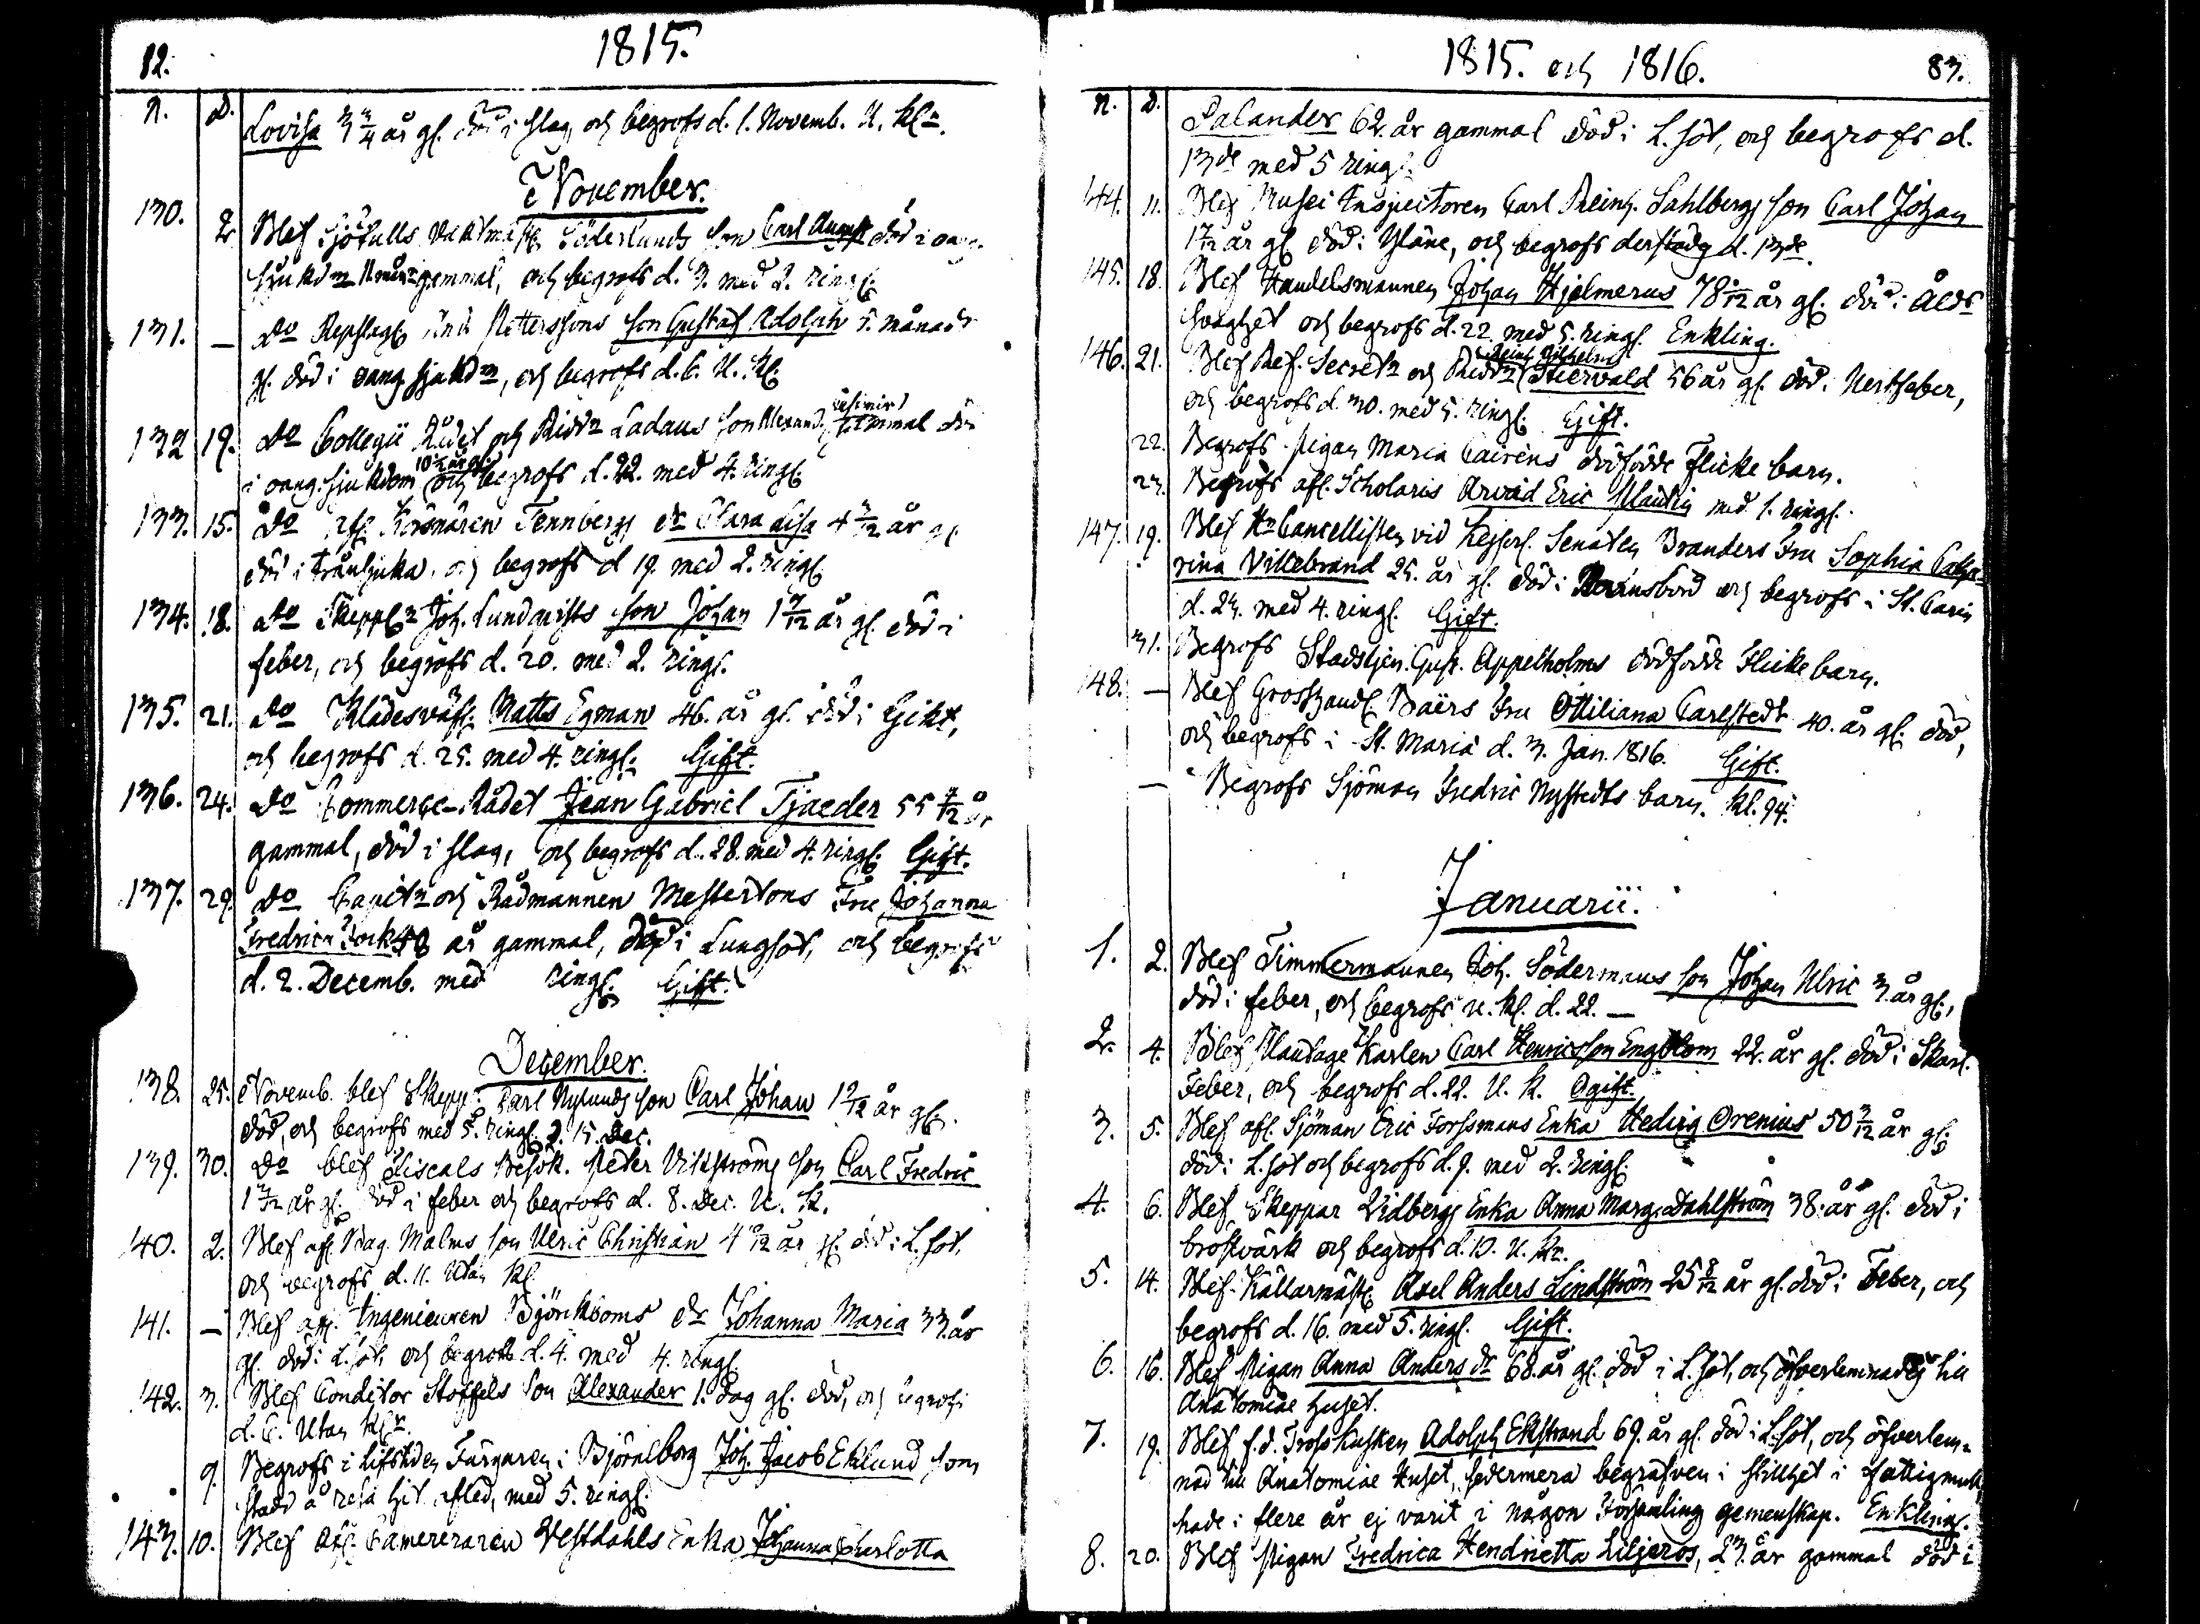 82.
1815.
N. D.
Lovisa 3 3/4 år gl. död i slag, och begrofs d. 1. Novemb. U. Kl.
November.
130. 2 Blef Sjötulls Vaktmäst. Söderlunds son Carl August död i oang.
sjukdm 11 mån. gammal, och begrofs d. 3. med 2. ringl.
131. — Do Repslag. Pettersons son Gustaf Adolph 5. månad
gl. död i oang. sjukdm, och begrofs d. 6. U. Kl.
132 19. Do Collegii Rådet och Ridd. Ladaus son Alexand. Casimir gammal död
i oang. sjukdom 10 1/2 år gl. och begrofs d. 22. med 4. ringl.
133. 15. Do afl. Tennbergs dr Clara Lisa 4 3/12 år gl.
död i Trånsjuka, och begrofs d 19. med 2. ringl.
134. 18. Do Skepp. Joh. Lundqvists son Johan 1 3/12 år gl. död i
feber, och begrofs d. 20. med 2. ringl.
135. 21. Do Klädesväf. Matts Egman 46. år gl. död i Gikt,
och begrofs d. 25. med 4. ringl. Gift.
136. 24. Do Commerce-Rådet Jean Gabriel Tjaeder 55 4/12 år
gammal, död i slag, och begrofs d. 28. med 4. ringl. Gift.
137. 29. Do Capit. och Rådmannen Mestertons Fru Johanna
Fredrica Fock 48 år gammal, död i Lungsot, och begrofs
d. 2. Decemb. med ringl. Gift.
December.
138. 25. Novemb. blef Skepp. Carl Nylunds son Carl Johan 1 2/12 år gl.
död, och begrofs med 5. ringl. d. 15. Dec.
139. 30. Do blef Fiscals Besök. Peter Vikströms son Carl Fredric
1 3/12 år gl. död i feber och begrofs d. 8. Dec. U. Kl.
140. 2. Blef afl. Bag. Malms son Ulric Christian 4 /12 år gl. död i L. sot,
och begrofs d. 11. Utan Kl.
141. — Blef afl. Ingenieuren Björkboms dr Johanna Maria 33. år
gl. död i L. sot, och begrofs d. 4. med 4. ringl.
142. 3. Blef Conditor Stoffels son Alexander 1. dag gl. död, och begrofs
d. 6. Utan Kl.
9. Begrofs i Lifstiden Färgaren i Björneborg Joh. Jacob Eklund som
stadd å resa hit afled, med 5. ringl.
143. 10. Blef Afl. Camereraren Vestdahls Enka Johanna Charlotta
1815. och 1816.
83.
N. D.
Palander 62. år gammal död i L. sot, och begrofs d.
13de med 5 ringl.
144. 11. Blef Musei Inspectoren Carl Reinh. Sahlbergs son Carl Johan
1 7/12 år gl. död i Yläne, och begrofs derstädes d. 13de.
145. 18. Blef Handelsmannen Johan Hjelmerus 78 /12 år gl. död i Ålds
svaghet och begrofs d. 22. med 5. ringl. Enkling.
146. 21. Blef Ref. Secret. och Ridd. Reinh. Vilhelm Stiervald 56 år gl. död i Nertfeber,
och begrofs d. 30. med 5. ringl. Gift.
22. Begrofs Pigan Maria Cairens dödfödde Flicke barn.
23. Begrofs afl. Scholaris Arvid Eric Plaudin med 1. ringl.
147. 19. Blef Hr Cancellisten vid Kejserl. Senaten Branders Fru Sophia Catha-
rina Villebrand 25. år gl. död i Barnsbörd och begrofs i St. Carin
d. 23. med 4. ringl. Gift.
31. Begrofs Stadstjen. Gust. Appelholms dödfödde Flicke barn.
148. — Blef Grosshandl. Baërs Fru Ottiliana Carlstedt 40. år gl. död,
och begrofs i St. Mariä d. 3. Jan. 1816. Gift.
— Begrofs Sjöman Fredric Nystedts barn. Kl. 94.
Januarii.
1. 2. Blef Timmermannen Joh. Södermans son Johan Ulric 3. år gl.,
död i feber, och begrofs u. Kl. d. 22. —
2. 4. Blef Plantage Karlen Carl Henricsson Engblom 22. år gl. död i Skarl.
Feber, och begrofs d. 22. U. K. Ogift.
3. 5. Blef afl. Sjöman Eric Forssmans Enka Hedvig Orenius 50 3/12 år gl.
död i L. sot och begrofs d. 9. med 2. ringl.
4. 6. Blef Skeppar Vidbergs Enka Anna Marg. Dahlström 38. år gl. död i
bröstvärk och begrofs d. 10. U. Kl.
5. 14. Blef Källarmäst. Axel Anders Lindström 25 8/12 år gl. död i Feber, och
begrofs d. 16. med 5. ringl. Gift.
6. 16. Blef Pigan Anna Anders dr 68. år gl. död i L. sot, och öfverlemnades till
Anatomiae huset.
7. 19. Blef f. d. Trosskusken Adolph Ekstrand 69. år gl. död i L. sot, och öfverlem-
nad till Anatomiae Huset, sedermera begrafven i stillhet i fattigmull,
hade i flere år ej varit i någon Församling gemenskap. Enkling.
8. 20. Blef Pigan Fredrica Hendrietta Liljeros, 23. år gammal död i